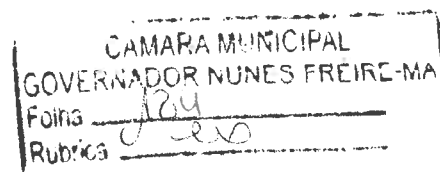 CAMARA MUNICIPAL
GOVERNADOR NUNES FREIRE-MA
Folha 124
Rubrica